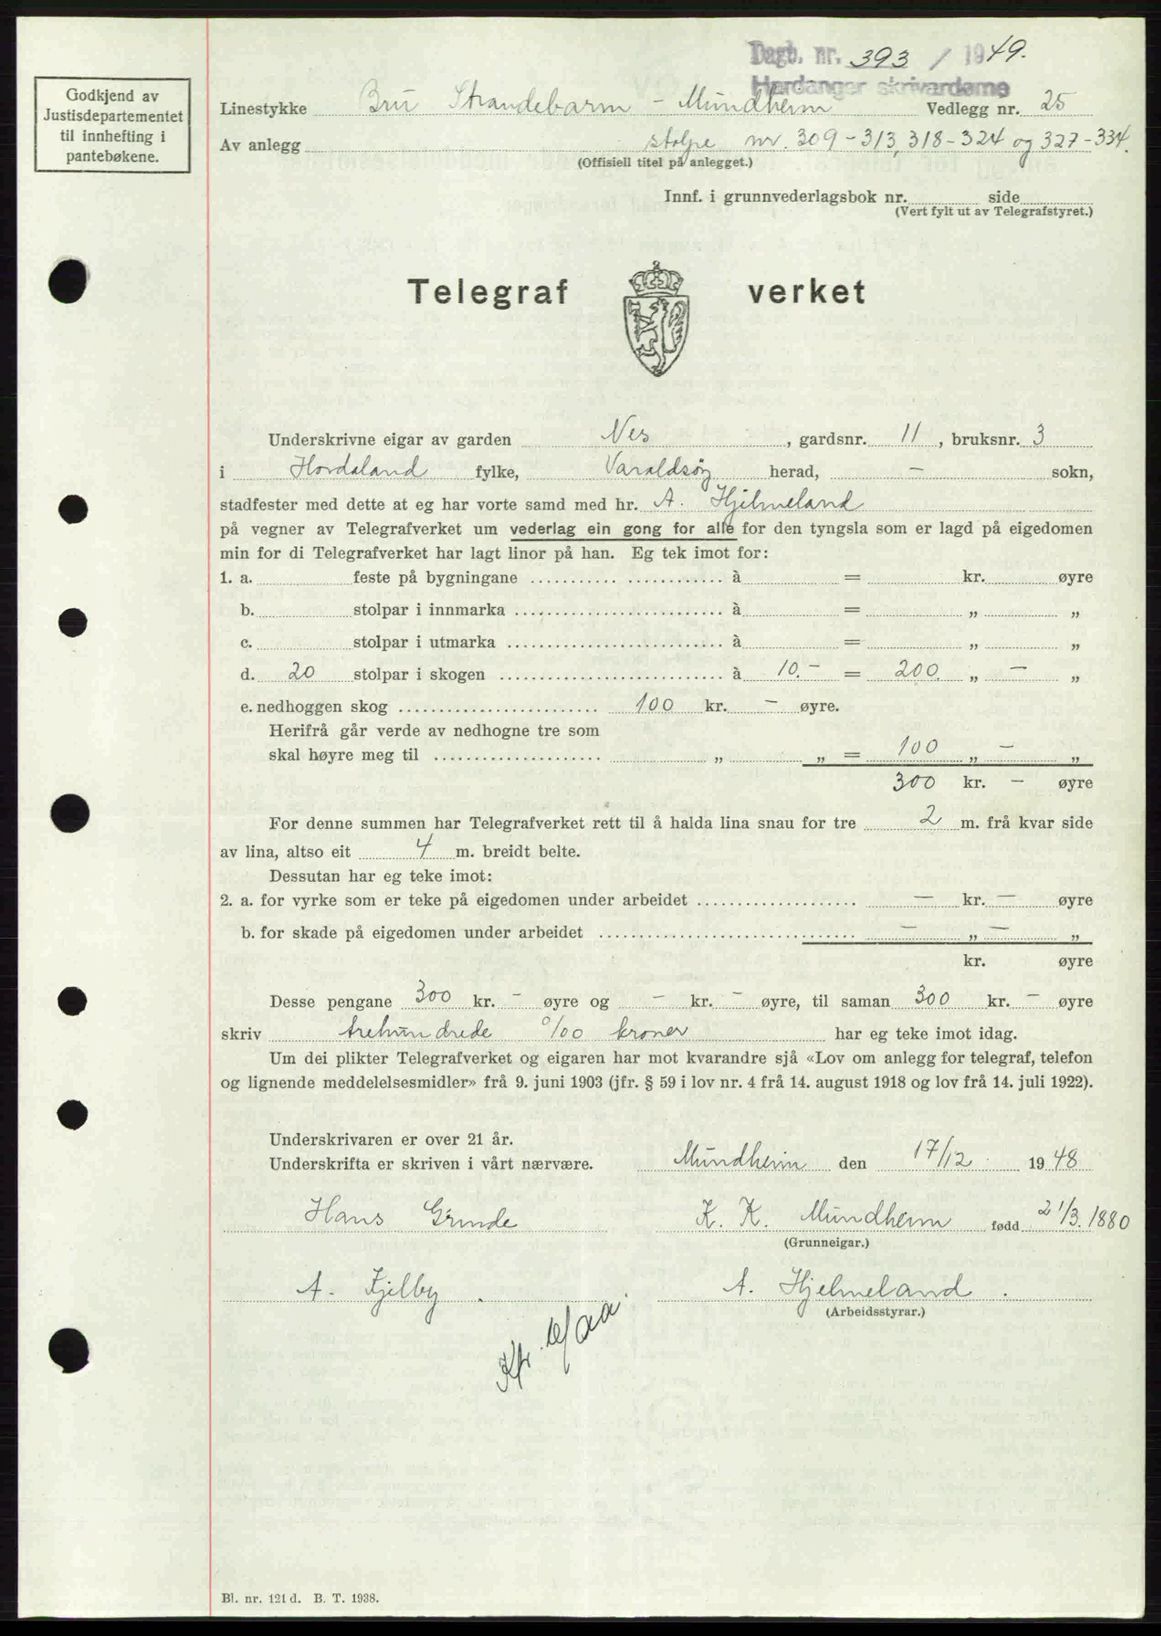 Dagb. nr. 393 / 1949.
Hardanger skrivardøme
Godkjend av
Justisdepartementet
til innhefting i
pantebøkene.
Linestykke Bru Strandebarm - Mundheim Vedlegg nr. 25
Av anlegg stolpe nr. 309-313, 318-324 og 327-334.
(Offisiell titel på anlegget.)
Innf. i grunnvederlagsbok nr. side
(Vert fylt ut av Telegrafstyret.)
Telegraf verket
Underskrivne eigar av garden Nes, gardsnr. 11, bruksnr. 3
i Hordaland fylke, Varaldsøy herad, - sokn,
stadfester med dette at eg har vorte samd med hr. A. Hjelmeland
på vegner av Telegrafverket um vederlag ein gong for alle for den tyngsla som er lagd på eigedomen
min for di Telegrafverket har lagt linor på han. Eg tek imot for:
1. a. feste på bygningane à = kr. øyre
b. stolpar i innmarka à = „ „
c. stolpar i utmarka à = „ „
d. 20 stolpar i skogen à 10.- = 200. „ - „
e. nedhoggen skog 100 kr. - øyre.
Herifrå går verde av nedhogne tre som
skal høyre meg til „ „ = 100 „ - „
300 kr. - øyre
For denne summen har Telegrafverket rett til å halda lina snau for tre 2 m. frå kvar side
av lina, altso eit 4 m. breidt belte.
Dessutan har eg teke imot:
2. a. for vyrke som er teke på eigedomen under arbeidet - kr. - øyre
b. for skade på eigedomen under arbeidet - „ - „
kr. øyre
Desse pengane 300 kr. - øyre og - kr. - øyre, til saman 300 kr. - øyre
skriv trehundrede 0/00 kroner har eg teke imot idag.
Um dei plikter Telegrafverket og eigaren har mot kvarandre sjå «Lov om anlegg for telegraf, telefon
og lignende meddelelsesmidler» frå 9. juni 1903 (jfr. § 59 i lov nr. 4 frå 14. august 1918 og lov frå 14. juli 1922).
Underskrivaren er over 21 år.
Underskrifta er skriven i vårt nærvære. Mundheim den 17/12 1948
Hans Grinde K. K. Mundheim fødd 21/3. 1880
(Grunneigar.)
A. Fjelby. A. Hjelmeland.
(Arbeidsstyrar.)
Bl. nr. 121 d. B. T. 1938.